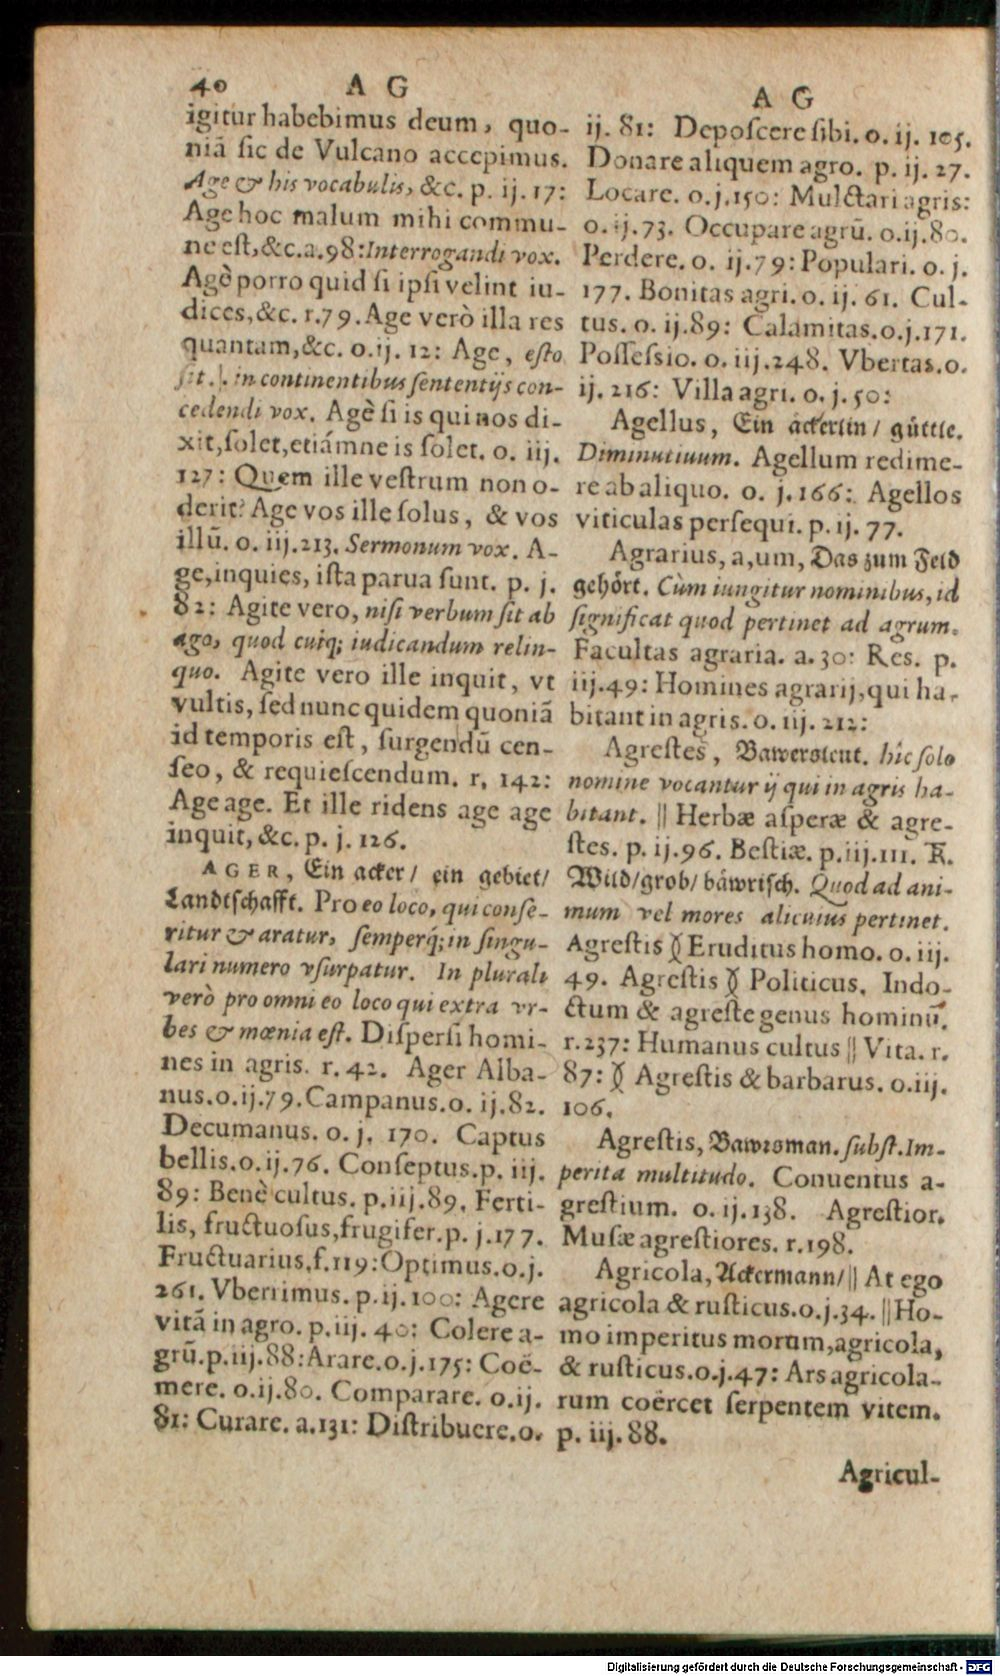 40 A G
igitur habebimus deum, quo-
niā ſic de Vulcano accepimus.
Age & his vocabulis, &c. p. ij. 17:
Age hoc malum mihi commu-
ne eſt, &c. a. 98: Interrogandi vox.
Agè porro quid ſi ipſi velint iu-
dices, &c. r. 79. Age verò illa res
quantam, &c. o. ij. 12: Age, eſto
ſit. in continentibus ſententijs con-
cedendi vox. Agè ſi is qui nos di-
xit, ſolet, etiámne is ſolet. o. iij.
127: Quem ille veſtrum non o-
derit? Age vos ille ſolus, & vos
illū. o. iij. 213. Sermonum vox. A-
ge, inquies, iſta parua ſunt. p. j.
82: Agite vero, niſi verbum ſit ab
ago, quod cuiq; iudicandum relin-
quo. Agite vero ille inquit, vt
vultis, ſed nunc quidem quoniā
id temporis eſt, ſurgendū cen-
ſeo, & requieſcendum. r. 142:
Age age. Et ille ridens age age
inquit, &c. p. j. 126.
AGER, Ein acker/ ein gebiet/
Landtſchafft. Pro eo loco, qui conſe-
ritur & aratur, ſemperq́; in ſingu-
lari numero vſurpatur. In plurali
verò pro omni eo loco qui extra vr-
bes & mœnia eſt. Diſperſi homi-
nes in agris. r. 42. Ager Alba-
nus. o. ij. 79. Campanus. o. ij. 82.
Decumanus. o. j. 170. Captus
bellis. o. ij. 76. Conſeptus. p. iij.
89: Benè cultus. p. iij. 89. Ferti-
lis, fructuoſus, frugifer. p. j. 177.
Fructuarius. f. 119: Optimus. o. j.
261. Vberrimus. p. ij. 100: Agere
vitā in agro. p. iij. 40: Colere a-
grū. p. iij. 88: Arare. o. j. 175: Coë-
mere. o. ij. 80. Comparare. o. ij.
81: Curare. a. 131: Diſtribuere. o.
A G
ij. 81: Depoſcere ſibi. o. ij. 105.
Donare aliquem agro. p. ij. 27.
Locare. o. j. 150: Mulctari agris:
o. ij. 73. Occupare agrū. o. ij. 80.
Perdere. o. ij. 79: Populari. o. j.
177. Bonitas agri. o. ij. 61. Cul-
tus. o. ij. 89: Calamitas. o. j. 171.
Poſſeſsio. o. iij. 248. Vbertas. o.
ij. 216: Villa agri. o. j. 50:
Agellus, Ein äckerlin/ güttle.
Diminutiuum. Agellum redime-
re ab aliquo. o. j. 166: Agellos
viticulas perſequi. p. ij. 77.
Agrarius, a, um, Das zum Feld
gehört. Cùm iungitur nominibus, id
ſignificat quod pertinet ad agrum.
Facultas agraria. a. 30: Res. p.
iij. 49: Homines agrarij, qui ha-
bitant in agris. o. iij. 212:
Agreſtes, Bawersleut. hîc ſolo
nomine vocantur ij qui in agris ha-
bitant. || Herbæ aſperæ & agre-
ſtes. p. ij. 96. Beſtiæ. p. iij. 111. R.
Wild/ grob/ bäwriſch. Quod ad ani-
mum vel mores alicuius pertinet.
Agreſtis )( Eruditus homo. o. iij.
49. Agreſtis )( Politicus. Indo-
ctum & agreſte genus hominū.
r. 237: Humanus cultus || Vita. r.
87: )( Agreſtis & barbarus. o. iij.
106.
Agreſtis, Bawrsman. ſubſt. Im-
perita multitudo. Conuentus a-
greſtium. o. ij. 138. Agreſtior.
Muſæ agreſtiores. r. 198.
Agricola, Ackermann/ || At ego
agricola & ruſticus. o. j. 34. || Ho-
mo imperitus morum, agricola,
& ruſticus. o. j. 47: Ars agricola-
rum coërcet ſerpentem vitem.
p. iij. 88.
Agricul-
Digitalisierung gefördert durch die Deutsche Forschungsgemeinschaft - DFG